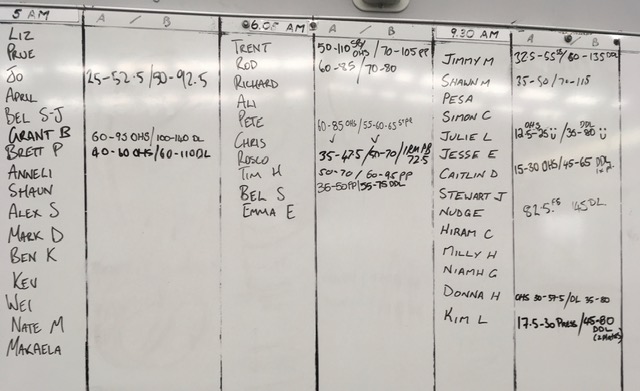 5 AM
A / B
LIZ
PRUE
JO 25-52.5/50-92.5
APRIL
BEL S-J
GRANT B 60-95 OHS/100-140 DL
BRETT P 40-60 OHS/60-110 DL
ANNELI
SHAUN
ALEX S
MARK D
BEN K
KEV
WEI
NATE M
MAKAELA
6.05 AM
A / B
TRENT 50-110 OHS/70-105 PP
ROD 60-85/70-80
RICHARD
ALI
PETE 60-85 OHS/55-60-65
CHRIS
ROSCO 35-47.5/50-70/1RM PB 72.5
TIM H 50-70/60-95 PP
BEL S 35-50 PP/55-75 DDL
EMMA E
9.30 AM
A B
JIMMY M 32.5-55/60-135 DDL
SHAUN M 35-50/70-115
PESA
SIMON C
JULIE L OHS 12.5-25/DDL 35-80
JESSE E
CAITLIN D 15-30 OHS/45-65 DDL
STEWART J
NUDGE 82.5 145 DL
HIRAM C
MILLY H
NIAMH G
DONNA H OHS 30-57.5/DL 35-80
KIM L 17.5-30 PRESS/45-80 DDL